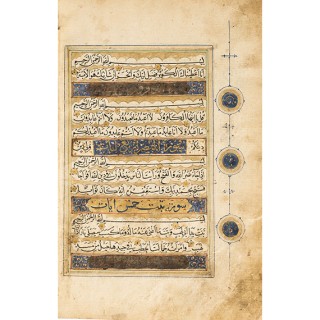 بسم الله الرحمن الرحيم
انا اعطيناك الكوثر فصل لربك وانحر ان شانئك هو الابتر
بسم الله الرحمن الرحيم
قل يا ايها الكافرون لا اعبد ما تعبدون ولا انتم عابدون
ما اعبد ولا انا عابد ما عبدتم ولا انتم عابدون ما اعبد
دينكم ولي دين
بسم الله الرحمن الرحيم
اذا جاء نصر الله والفتح ورايت الناس يدخلون في دين الله افواجا
فسبح بحمد ربك واستغفره انه كان توابا
سورة تبت خمس ايات
بسم الله الرحمن الرحيم
تبت يدا ابي لهب وتب ما اغنى عنه ماله وما كسب سيصلى نارا ذات
لهب وامراته حمالة الحطب في جيدها حبل من مسد